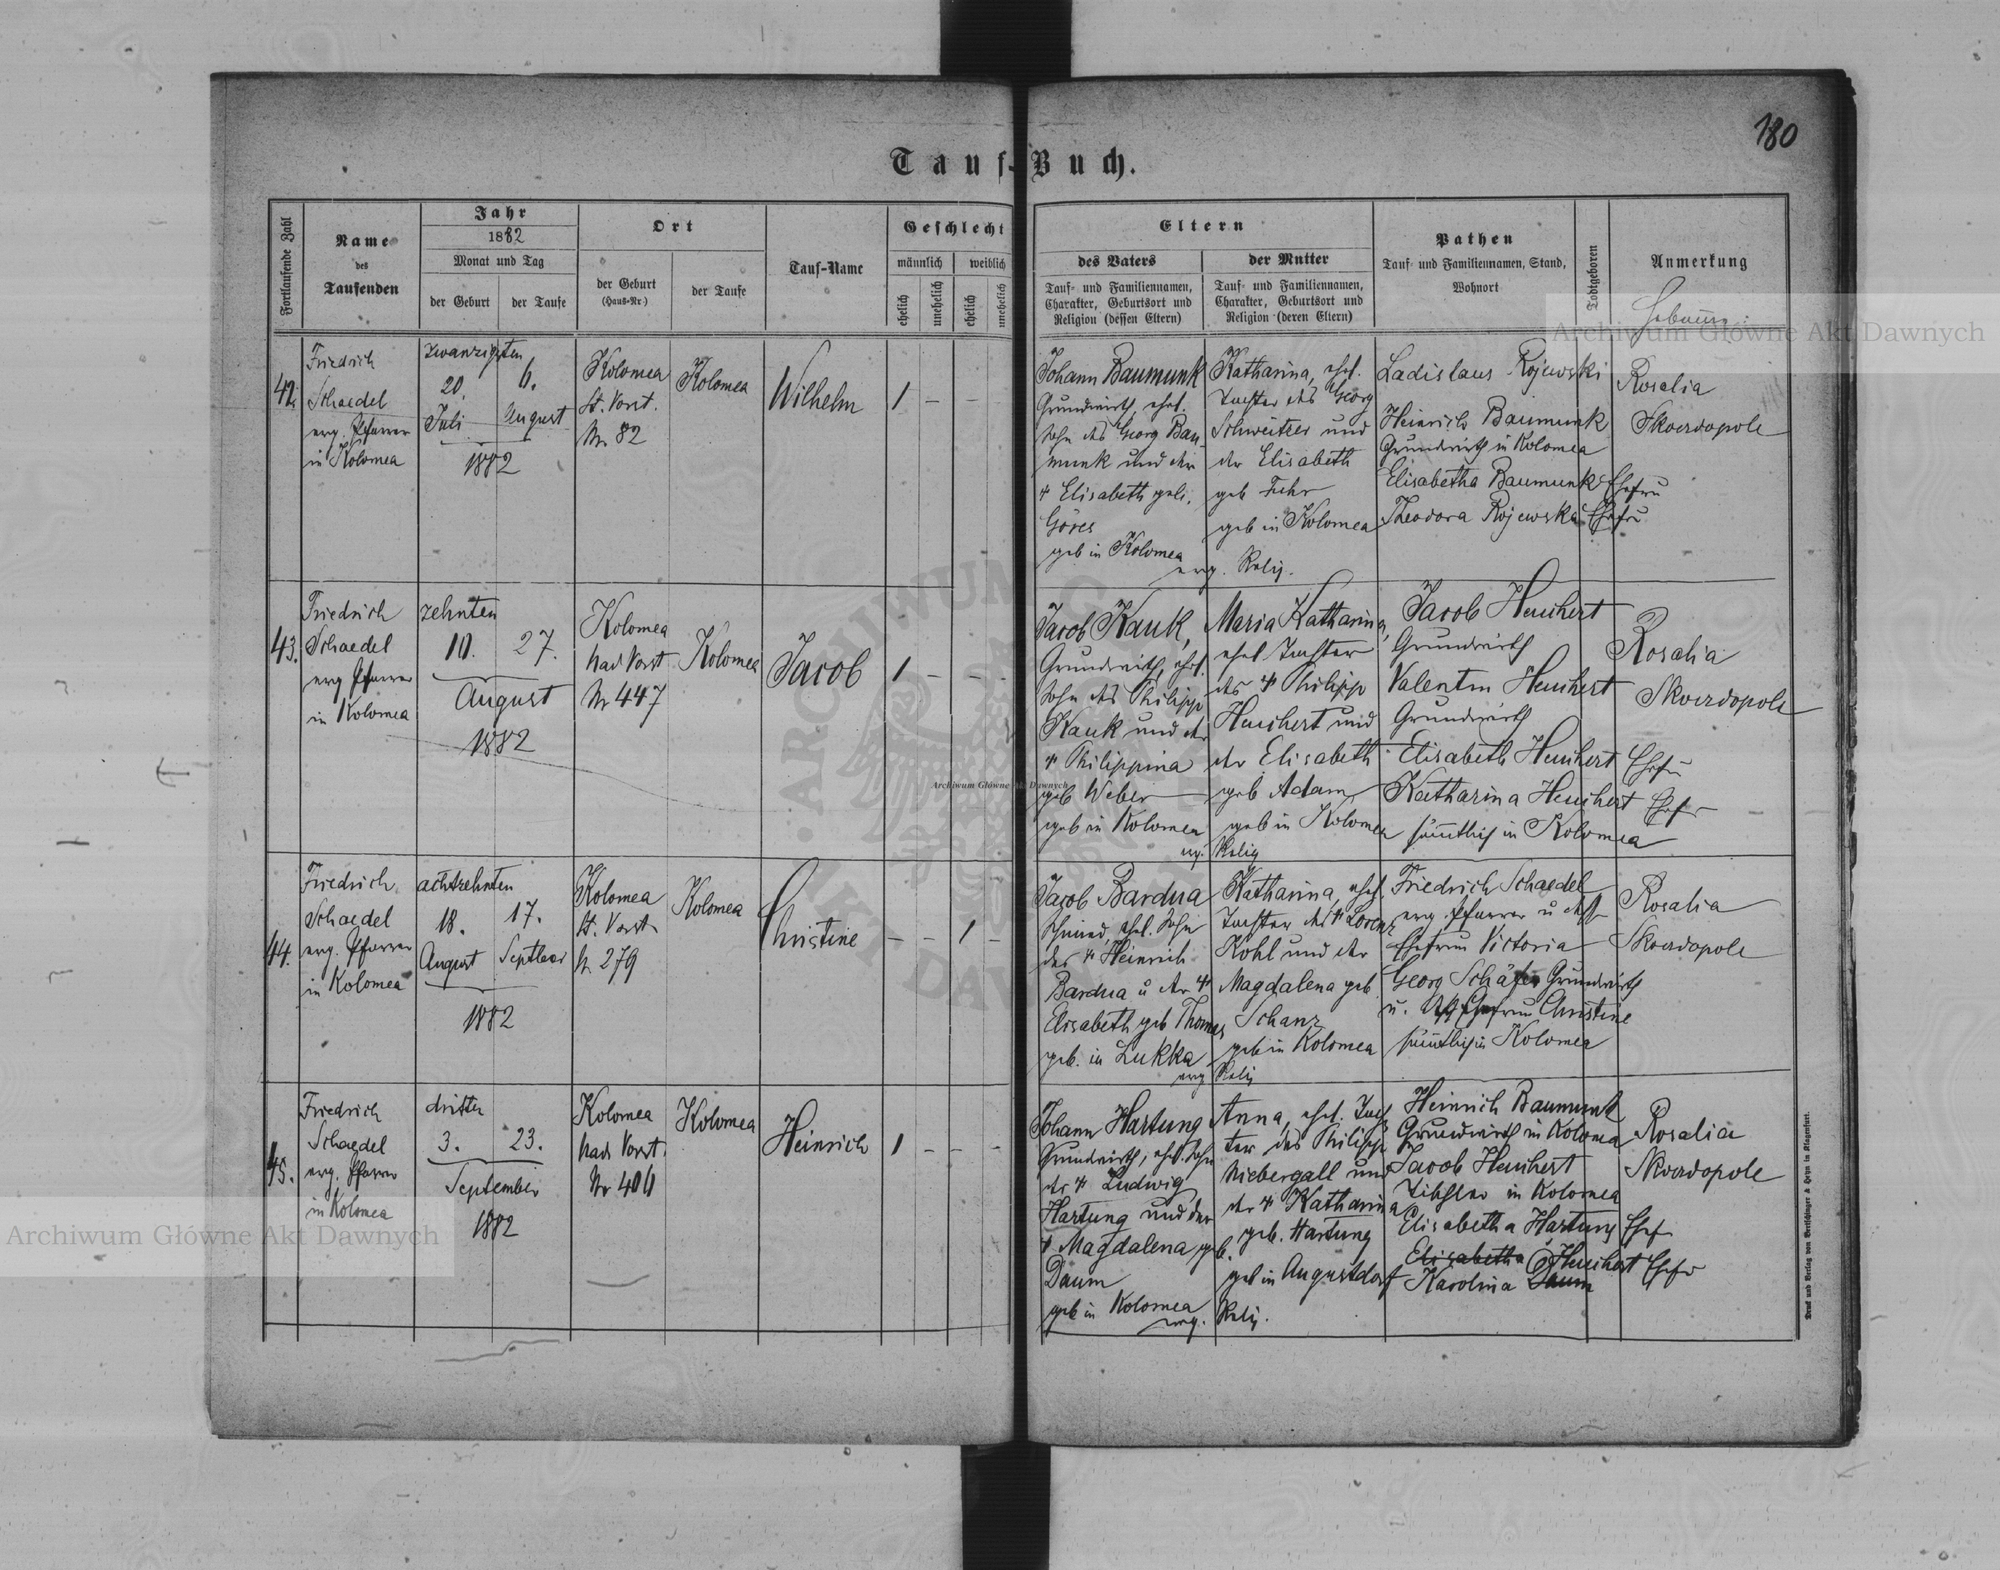 180
Tauf-Buch.
Fortlaufende Zahl
Name
des
Taufenden
Jahr
1882
Monat und Tag
der Geburt
der Taufe
Ort
der Geburt
(Haus-Nr.)
der Taufe
Tauf-Name
Geschlecht
männlich
weiblich
ehelich
unehelich
ehelich
unehelich
Eltern
des Vaters
Tauf- und Familiennamen,
Charakter, Geburtsort und
Religion (dessen Eltern)
der Mutter
Tauf- und Familiennamen,
Charakter, Geburtsort und
Religion (deren Eltern)
Pathen
Tauf- und Familiennamen, Stand,
Wohnort
Todtgeboren
Anmerkung
42.
Friedrich
Schaedel
evg. Pfarrer
in Kolomea
zwanzigsten
20.
Juli
6.
August
1882
Kolomea
St. Vorst.
Nr 82
Kolomea
Wilhelm
1 – – –
Johann Baumunk
Grundwirth, ehel.
Sohn des Georg Bau-
munk und der
† Elisabeth geb.
Göres
geb in Kolomea
Katharina, ehel.
Tochter des Georg
Schweitzer und
der Elisabeth
geb Fuhr
geb in Kolomea
evg. Relig.
Ladislaus Rojewski
Heinrich Baumunk
Grundwirth in Kolomea
Elisabetha Baumunk Ehefru
Theodora Rojewska Ehefr
Rosalia
Skordopole
43.
Friedrich
Schaedel
evg Pfarrer
in Kolomea
zehnten
10.
27.
August
1882
Kolomea
Nad Vorst
Nr 447
Kolomea
Jacob
1 – – –
Jacob Kauk,
Grundwirth, ehel.
Sohn des Philipp
Kauk und der
† Philippina
geb Weber
geb in Kolomea
Maria Katharina,
ehel Tochter
des † Philipp
Heuchert und
der Elisabeth
geb Adam
geb in Kolomea
evg. Relig
Jacob Heuchert
Grundwirth
Valentin Heuchert
Grundwirth
Elisabeth Heuchert Ehefr
Katharina Heuchert Ehef
sämtlich in Kolomea
Rosalia
Skordopole
44.
Friedrich
Schaedel
evg. Pfarrer
in Kolomea
achtzehnten
18.
August
17.
September
1882
Kolomea
St. Vorst
Nr 279
Kolomea
Christine
– – 1 –
Jacob Bardua
Schmied, ehel. Sohn
des † Heinrich
Bardua u der †
Elisabeth geb Thomas
geb. in Lukka
Katharina, ehel.
Tochter des † Lorenz
Kohl und der
Magdalena geb
Schanz
geb in Kolomea
evg Relig
Friedrich Schaedel
evg. Pfarrer u dess
Ehefrau Victoria
Georg Schäfer Grundwirth
u. Ehefrau Christine
sämtlich in Kolomea
Rosalia
Skordopole
45.
Friedrich
Schaedel
evg. Pfarrer
in Kolomea
dritten
3.
23.
September
1882
Kolomea
Nad Vorst.
Nr 406
Kolomea
Heinrich
1 – – –
Johann Hartung
Grundwirth, ehel. Sohn
des † Ludwig
Hartung und der
† Magdalena geb.
Daum
geb in Kolomea
Anna, ehel. Toch
ter des Philipp
Niebergall und
der † Katharina
geb. Hartung
geb in Augustdorf
evg. Relig.
Heinrich Baumunk
Grundwirth in Kolomea
Jacob Heuchert
Tischler in Kolomea
Elisabetha Hartung Ehef
Elisabetha Heuchert Ehefr
Karolina Daum
Rosalia
Skordopole
Druck und Verlag von Bertschinger & Heyn in Klagenfurt.
Archiwum Główne Akt Dawnych
Archiwum Główne Akt Dawnych
Archiwum Główne Akt Dawnych
ARCHIWUM
AKT DAWNYCH